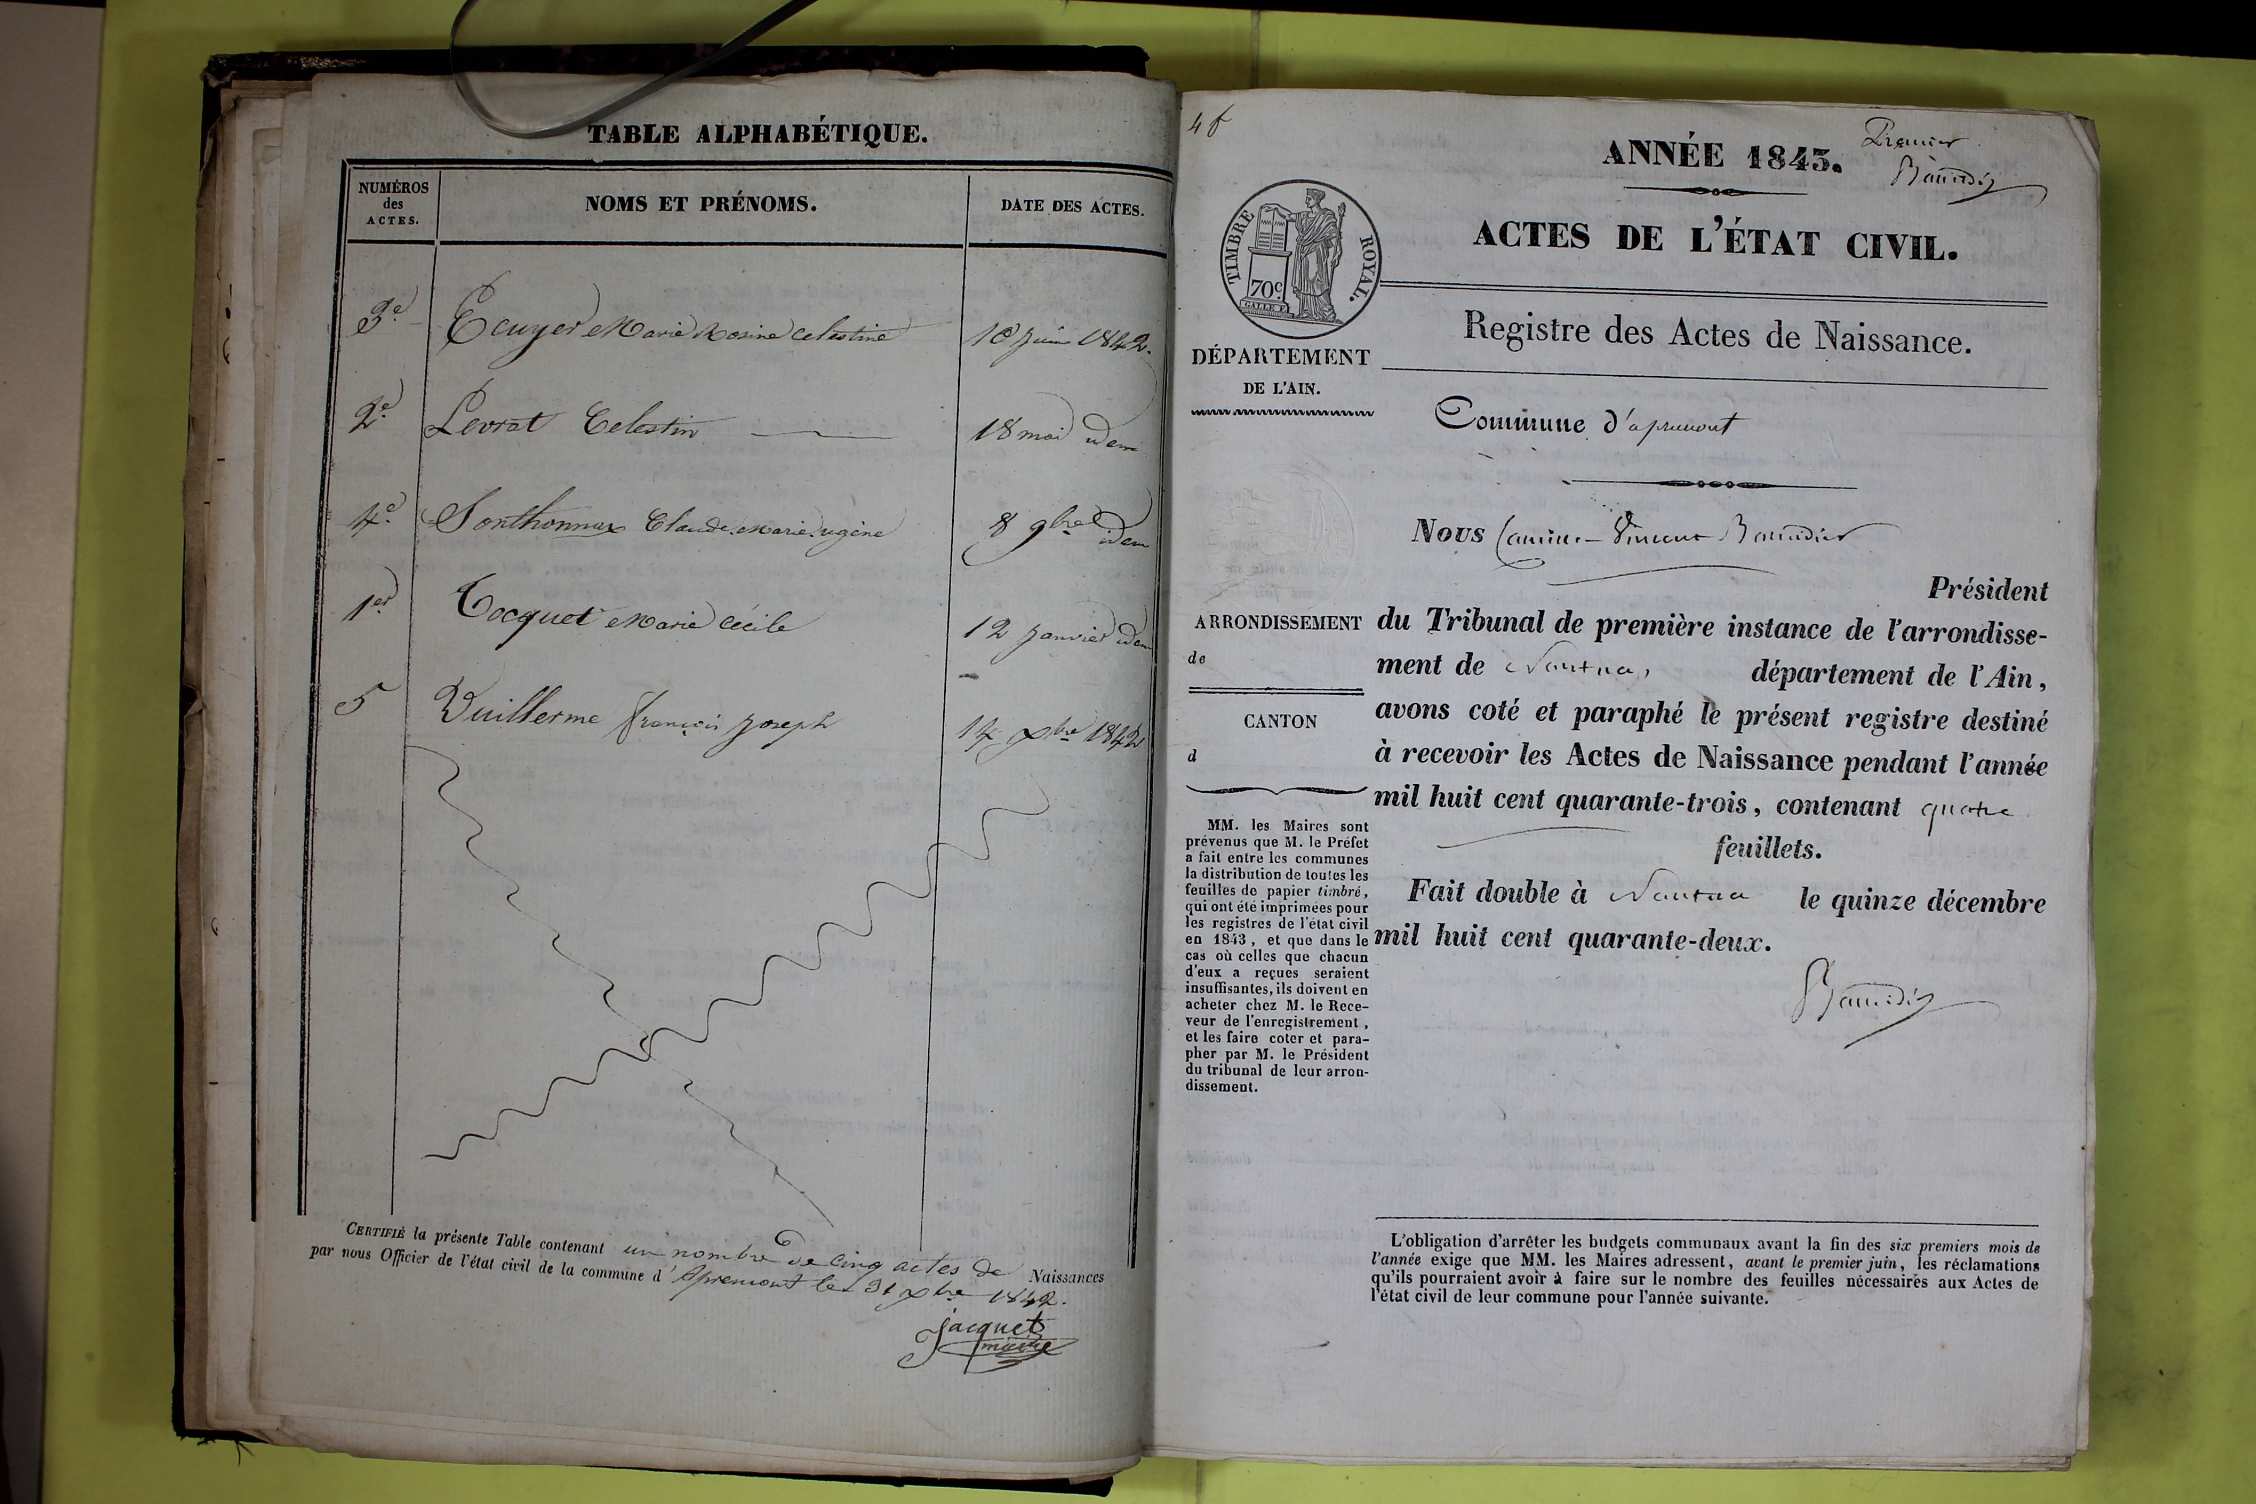 TABLE ALPHABÉTIQUE.
NUMÉROS des ACTES.
NOMS ET PRÉNOMS.
DATE DES ACTES.
3e Ecuyer Marie Rosine Celestine 18 juin 1842.
2e Levrat Celestin 18 mai idem
4e Sonthonnax Claude Marie Eugène 8 9bre idem
1er Tocquet Marie Cécile 12 janvier idem
5 Vuillerme françois joseph 14 xbre 1842
CERTIFIÉ la présente Table contenant un nombre de cinq actes de Naissances
par nous Officier de l'état civil de la commune d'Apremont le 31 xbre 1842.
Jacquet
maire
4 f
ANNÉE 1843.
Premier
Baudier
ACTES DE L'ÉTAT CIVIL.
TIMBRE ROYAL.
70c
DÉPARTEMENT
DE L'AIN.
Registre des Actes de Naissance.
Commune d'apremont
Nous Vincent
Président
ARRONDISSEMENT
de
CANTON
d
du Tribunal de première instance de l'arrondisse-
ment de Nantua, département de l'Ain,
avons coté et paraphé le présent registre destiné
à recevoir les Actes de Naissance pendant l'année
mil huit cent quarante-trois, contenant quatre
feuillets.
Fait double à Nantua le quinze décembre
mil huit cent quarante-deux.
MM. les Maires sont
prévenus que M. le Préfet
a fait entre les communes
la distribution de toutes les
feuilles de papier timbré,
qui ont été imprimées pour
les registres de l'état civil
en 1843, et que dans le
cas où celles que chacun
d'eux a reçues seraient
insuffisantes, ils doivent en
acheter chez M. le Rece-
veur de l'enregistrement,
et les faire coter et para-
pher par M. le Président
du tribunal de leur arron-
dissement.
L'obligation d'arrêter les budgets communaux avant la fin des six premiers mois de
l'année exige que MM. les Maires adressent, avant le premier juin, les réclamations
qu'ils pourraient avoir à faire sur le nombre des feuilles nécessaires aux Actes de
l'état civil de leur commune pour l'année suivante.